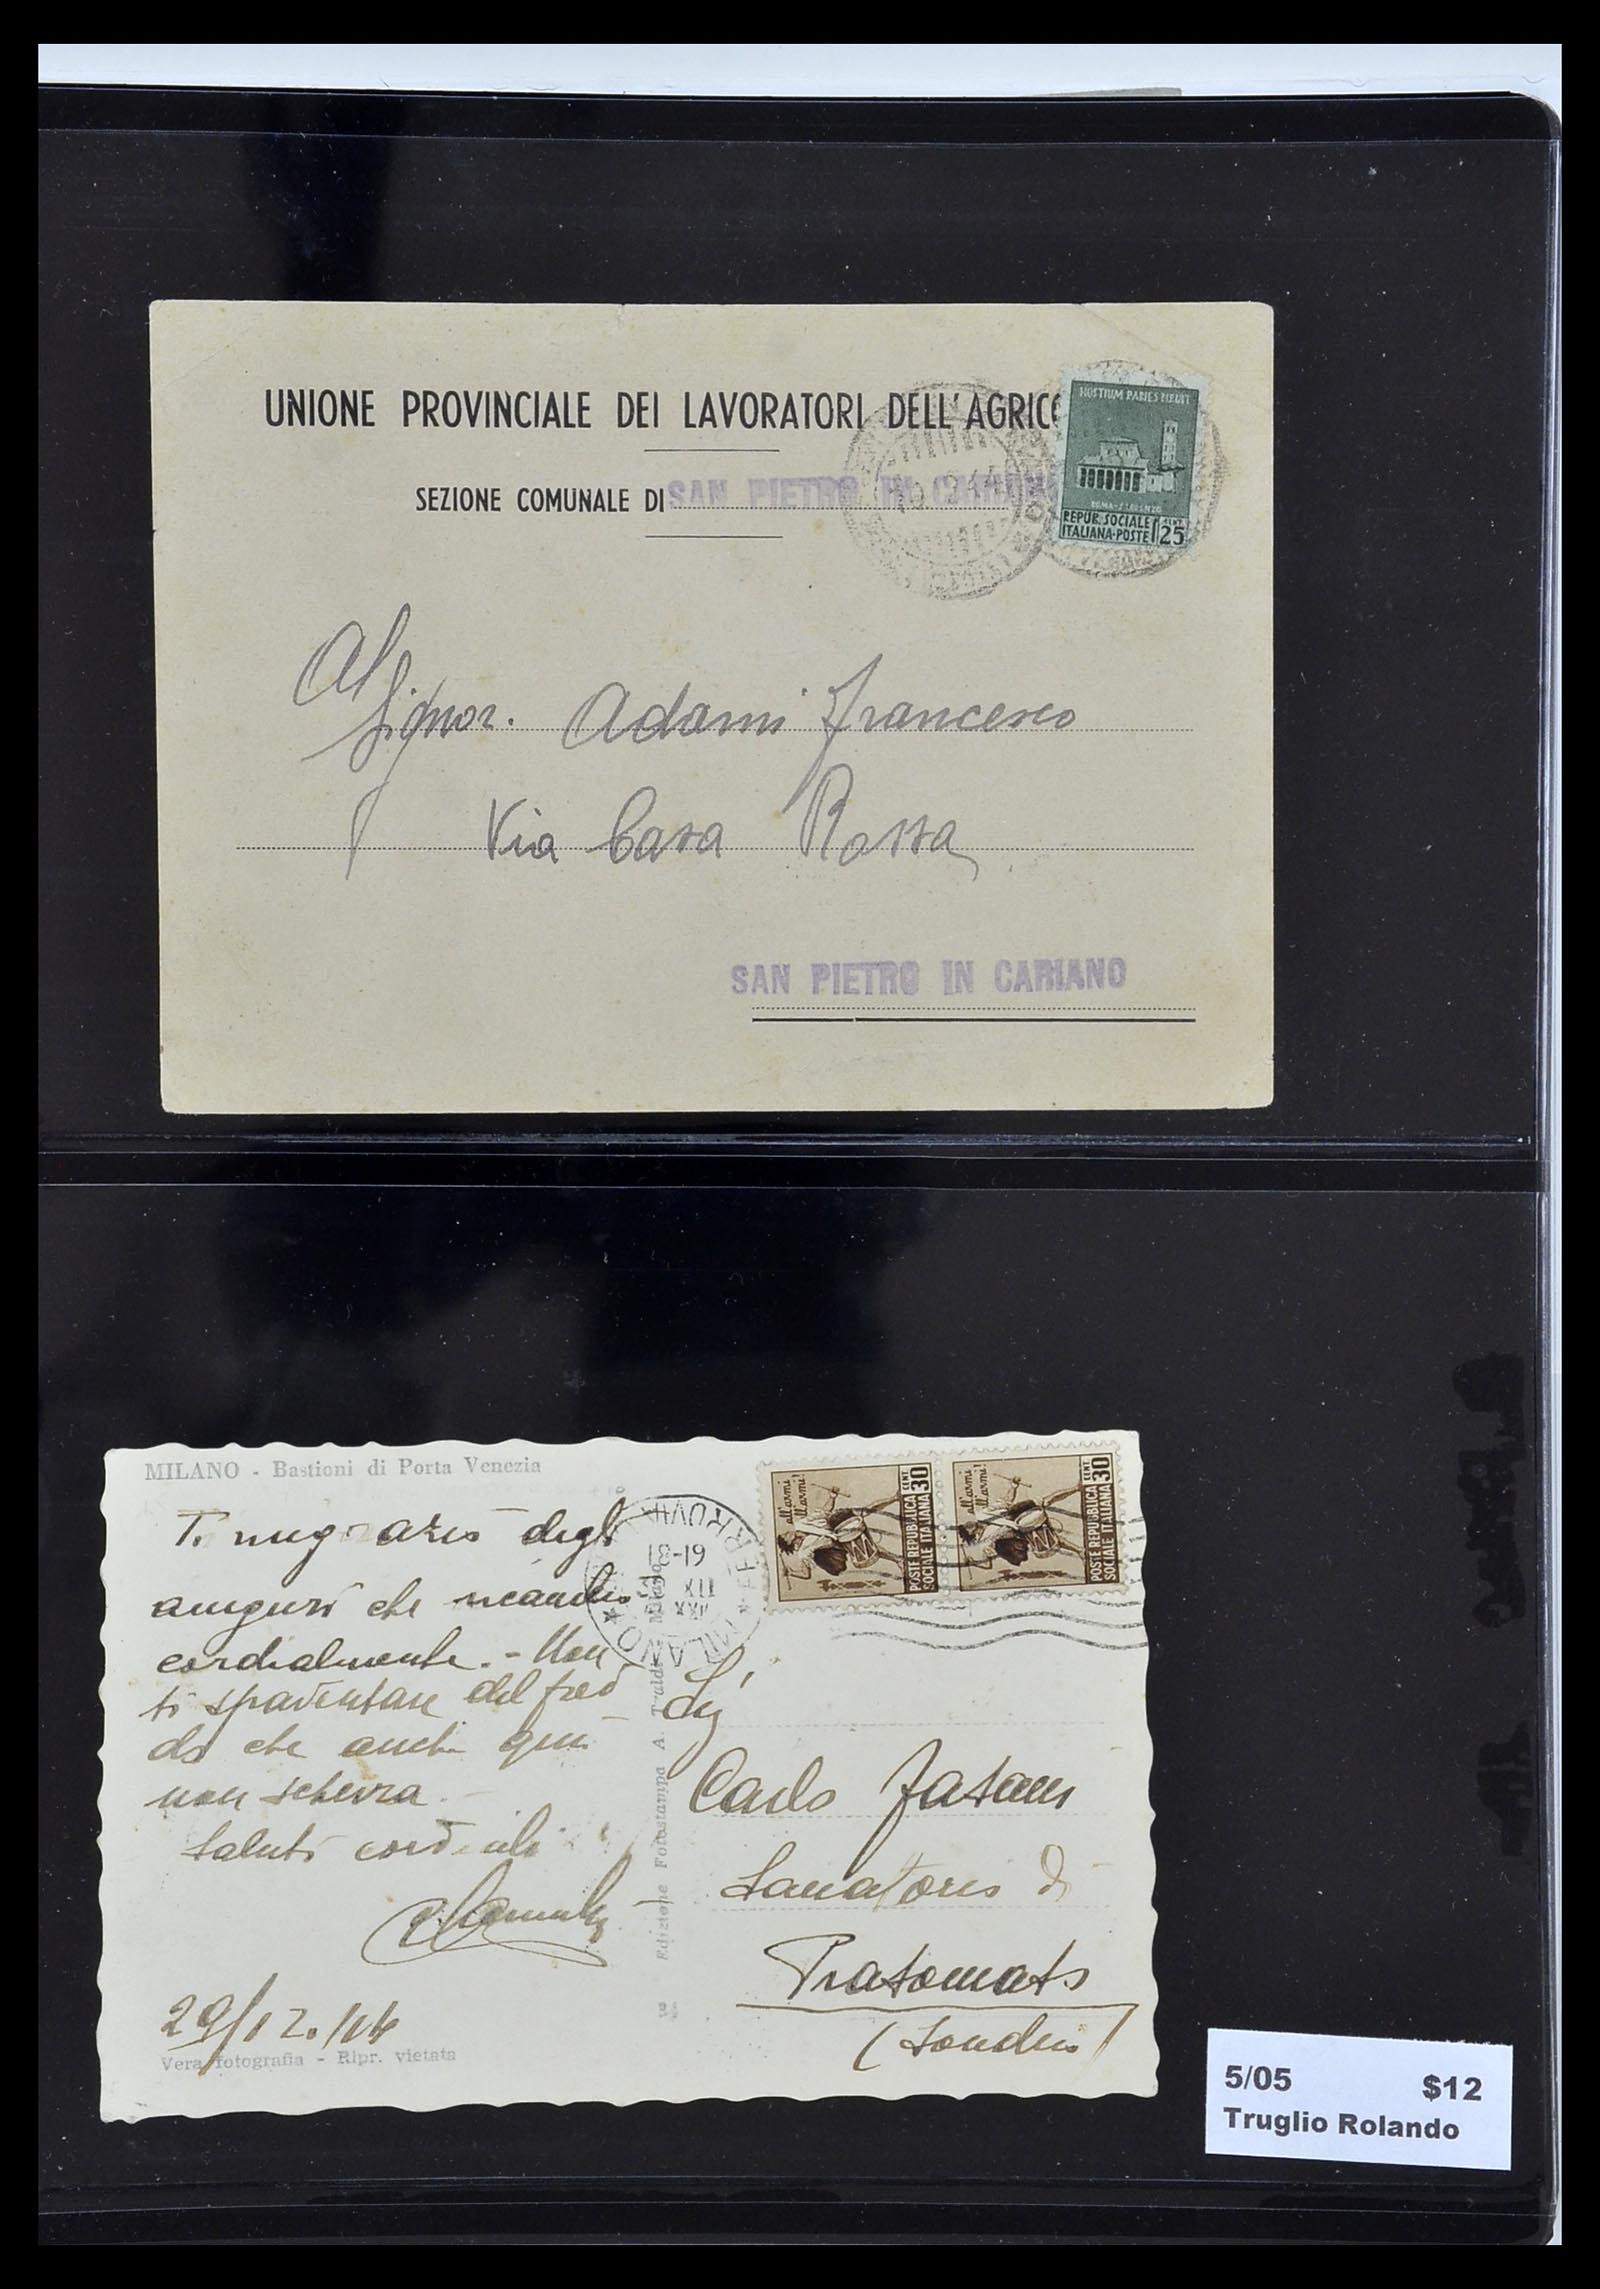 UNIONE PROVINCIALE DEI LAVORATORI DELL'AGRICO
SEZIONE COMUNALE DI SAN PIETRO IN CARIANO
HOSTIUM RABIES DIRUIT
ROMA - S. LORENZO
REPUB. SOCIALE
ITALIANA - POSTE CENT. 25
Al
Signor. Adami Francesco
Via Casa Rossa
SAN PIETRO IN CARIANO
MILANO - Bastioni di Porta Venezia
Ti ringrazio degli
auguri che ricambio
cordialmente. - Non
ti spaventare del fred
do che anche qui
non scherza. -
Saluti cordiali
29/12/44
Vera fotografia - Ripr. vietata
Edizione Fotostampa A. Traldi - Milano
MILANO FERROVIA
19-31
XII
all'armi
all'armi!
POSTE REPUBBLICA
SOCIALE ITALIANA
CENT. 30
all'armi
all'armi!
POSTE REPUBBLICA
SOCIALE ITALIANA
CENT. 30
Sig.
Carlo
Sanatorio di
Pratomato
(Sondrio)
5/05 $12
Truglio Rolando